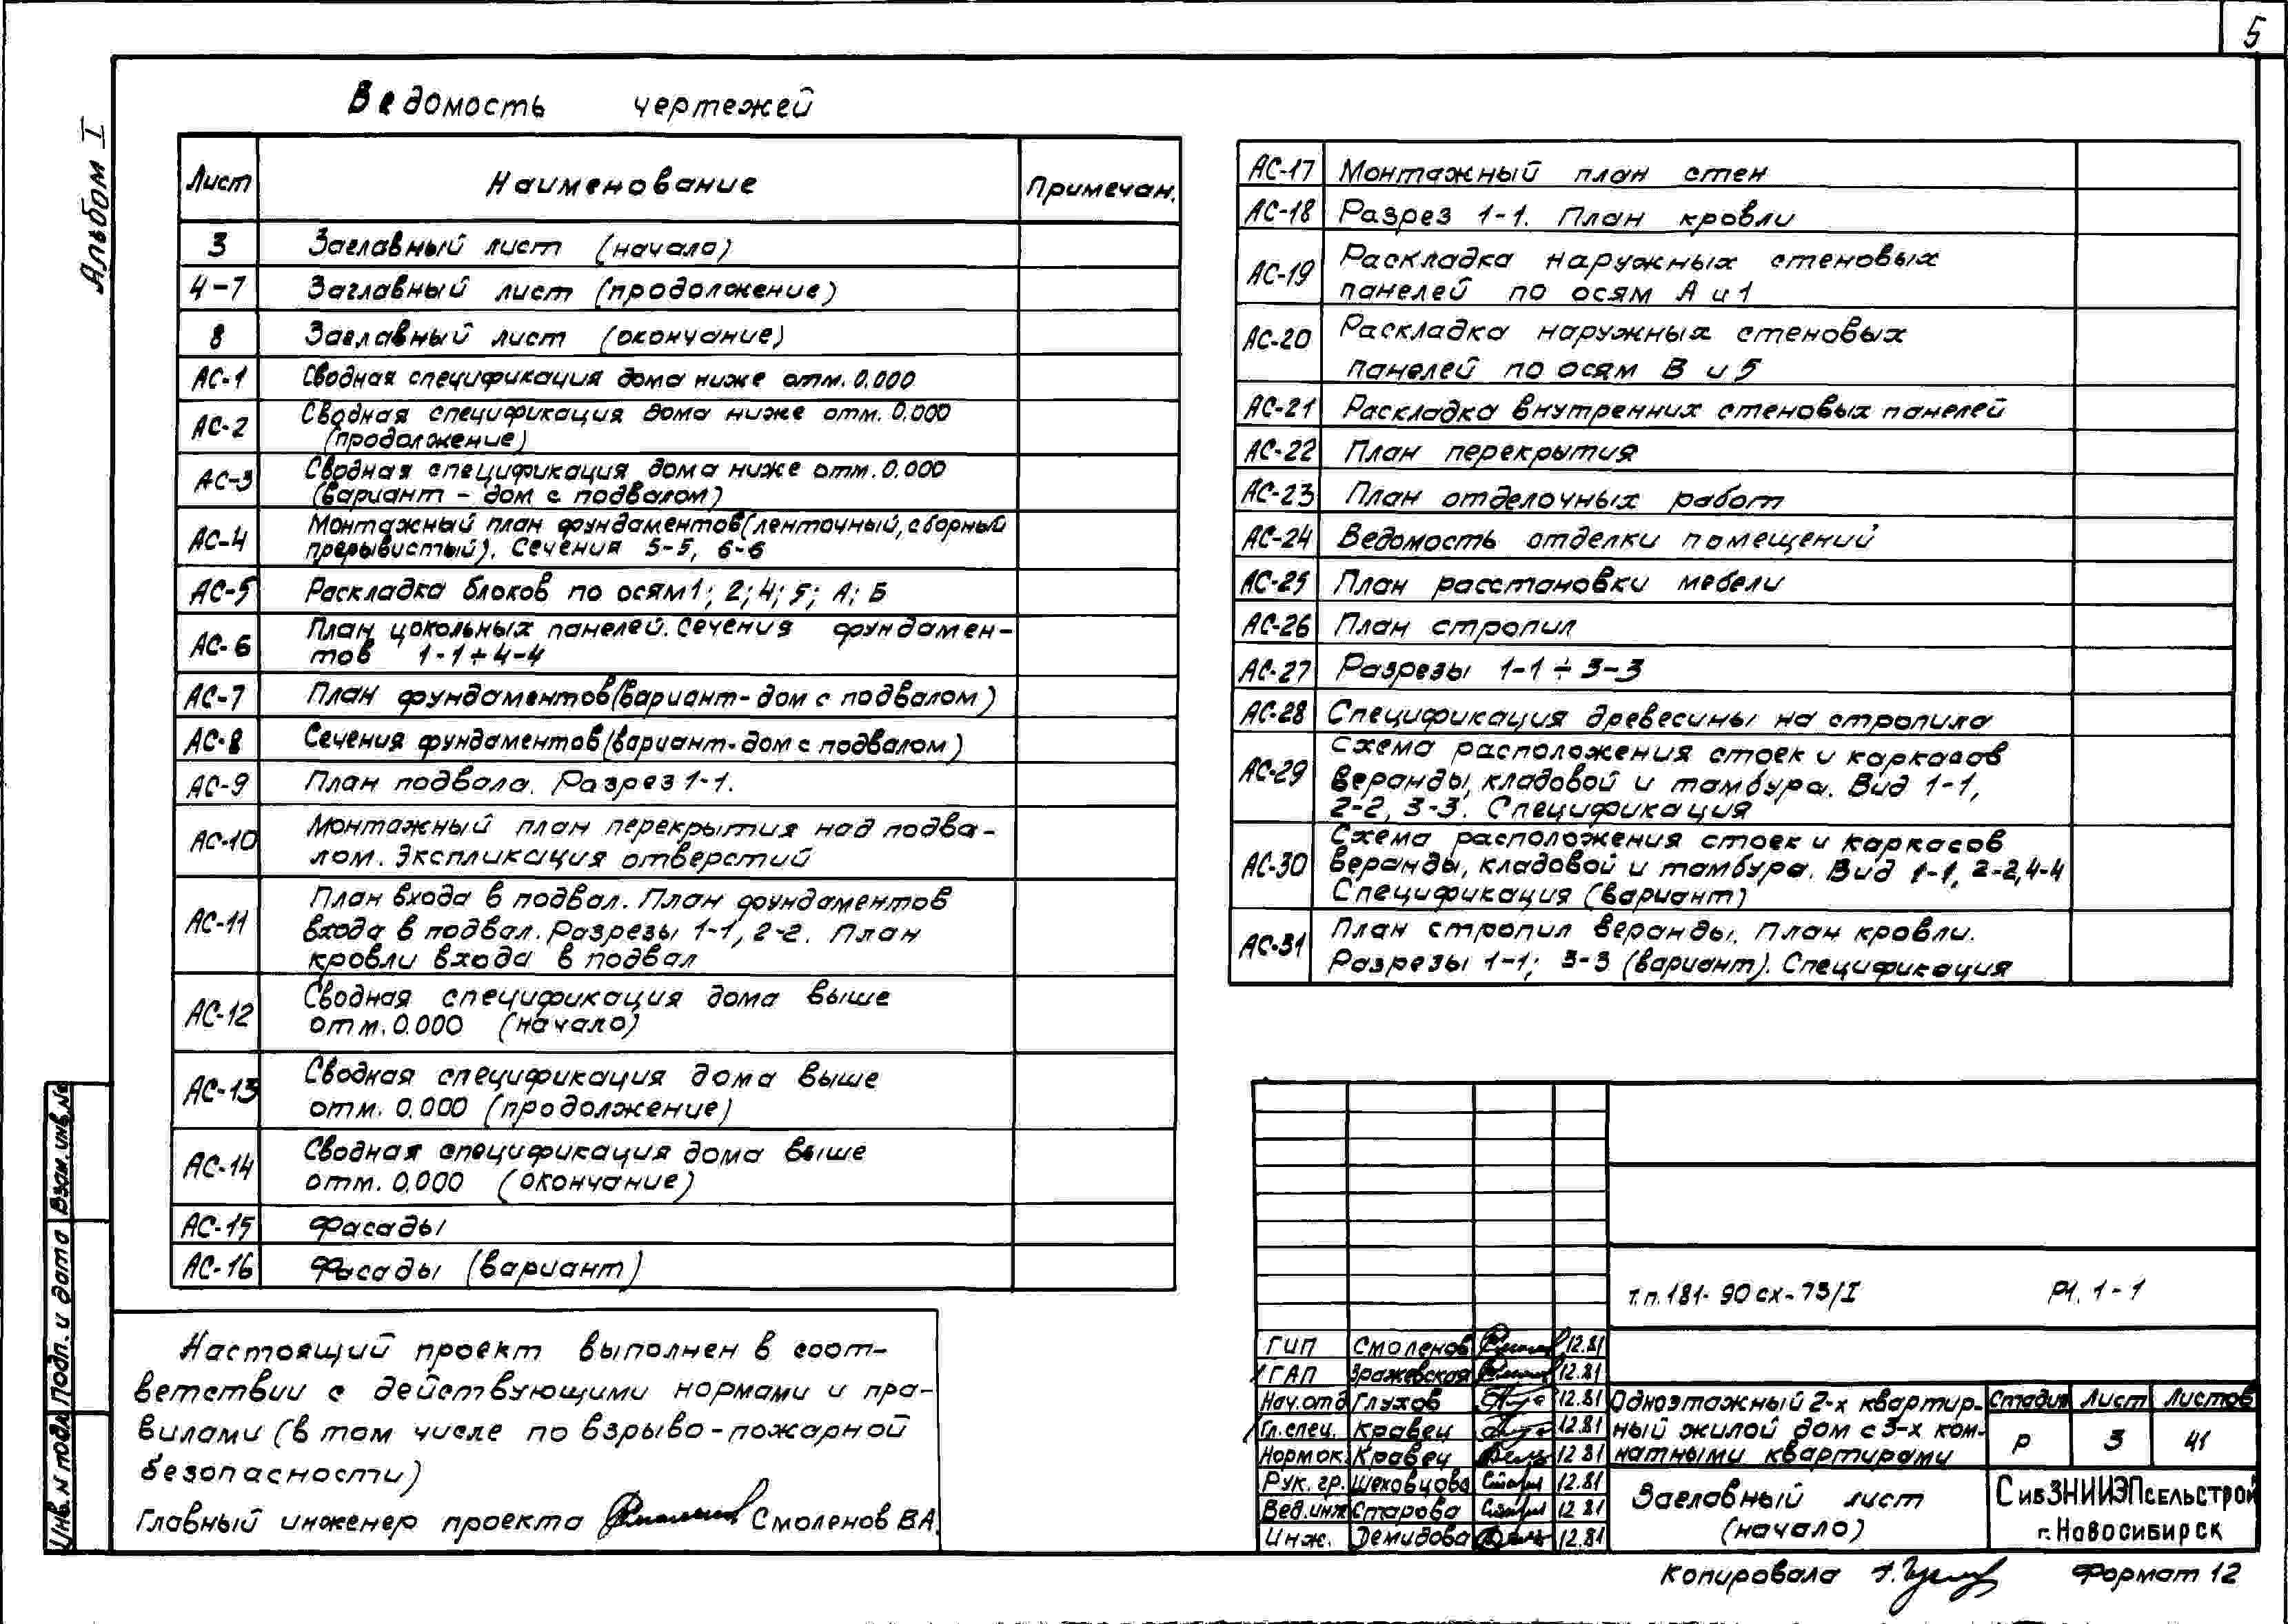 5
Альбом I
Ведомость чертежей
Лист Наименование Примечан.
3 Заглавный лист (начало)
4-7 Заглавный лист (продолжение)
8 Заглавный лист (окончание)
АС-1 Сводная спецификация дома ниже отм. 0.000
АС-2 Сводная спецификация дома ниже отм. 0.000
(продолжение)
АС-3 Сводная спецификация дома ниже отм. 0.000
(вариант - дом с подвалом)
АС-4 Монтажный план фундаментов (ленточный, сборный
прерывистый). Сечения 5-5, 6-6
АС-5 Раскладка блоков по осям 1; 2; 4; 5; А; Б
АС-6 План цокольных панелей. Сечения фундамен-
тов 1-1÷4-4
АС-7 План фундаментов (вариант-дом с подвалом)
АС-8 Сечения фундаментов (вариант-дом с подвалом)
АС-9 План подвала. Разрез 1-1.
АС-10 Монтажный план перекрытия над подва-
лом. Экспликация отверстий
АС-11 План входа в подвал. План фундаментов
входа в подвал. Разрезы 1-1, 2-2. План
кровли входа в подвал
АС-12 Сводная спецификация дома выше
отм. 0.000 (начало)
АС-13 Сводная спецификация дома выше
отм. 0.000 (продолжение)
АС-14 Сводная спецификация дома выше
отм. 0.000 (окончание)
АС-15 Фасады
АС-16 Фасады (вариант)
АС-17 Монтажный план стен
АС-18 Разрез 1-1. План кровли
АС-19 Раскладка наружных стеновых
панелей по осям А и 1
АС-20 Раскладка наружных стеновых
панелей по осям В и 5
АС-21 Раскладка внутренних стеновых панелей
АС-22 План перекрытия
АС-23 План отделочных работ
АС-24 Ведомость отделки помещений
АС-25 План расстановки мебели
АС-26 План стропил
АС-27 Разрезы 1-1 ÷ 3-3
АС-28 Спецификация древесины на стропила
АС-29 Схема расположения стоек и каркасов
веранды, кладовой и тамбура. Вид 1-1,
2-2, 3-3. Спецификация
АС-30 Схема расположения стоек и каркасов
веранды, кладовой и тамбура. Вид 1-1, 2-2, 4-4
Спецификация (вариант)
АС-31 План стропил веранды. План кровли.
Разрезы 1-1; 3-3 (вариант). Спецификация
Настоящий проект выполнен в соот-
ветствии с действующими нормами и пра-
вилами (в том числе по взрыво-пожарной
безопасности)
Главный инженер проекта Смоленов В.А.
Инв. N подл. Подп. и дата Взам. инв. №
т.п. 181-90сх-73/I Р1. 1-1
ГИП Смоленов 12.81
ГАП Зражевская 12.81
Нач.отд Глухов 12.81
Гл.спец. Кравец 12.81
Нормок. Кравец 12.81
Рук. гр. Шеховцова 12.81
Вед.инж Старова 12.81
Инж. Демидова 12.81
Одноэтажный 2-х квартир-
ный жилой дом с 3-х ком-
натными квартирами
Стадия Лист Листов
Р 3 41
Заглавный лист
(начало)
СибЗНИИЭПсельстрой
г. Новосибирск
Копировала Формат 12